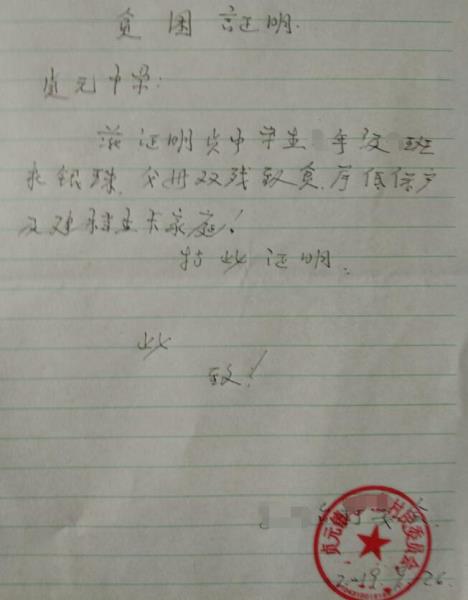 贫困证明.
贞元中学:
兹证明贵中学生 年级 班
银珠, 父母双残致贫, 属低保户
及建档立卡家庭!
特此证明.
此
致!
贞元镇 村民委员会